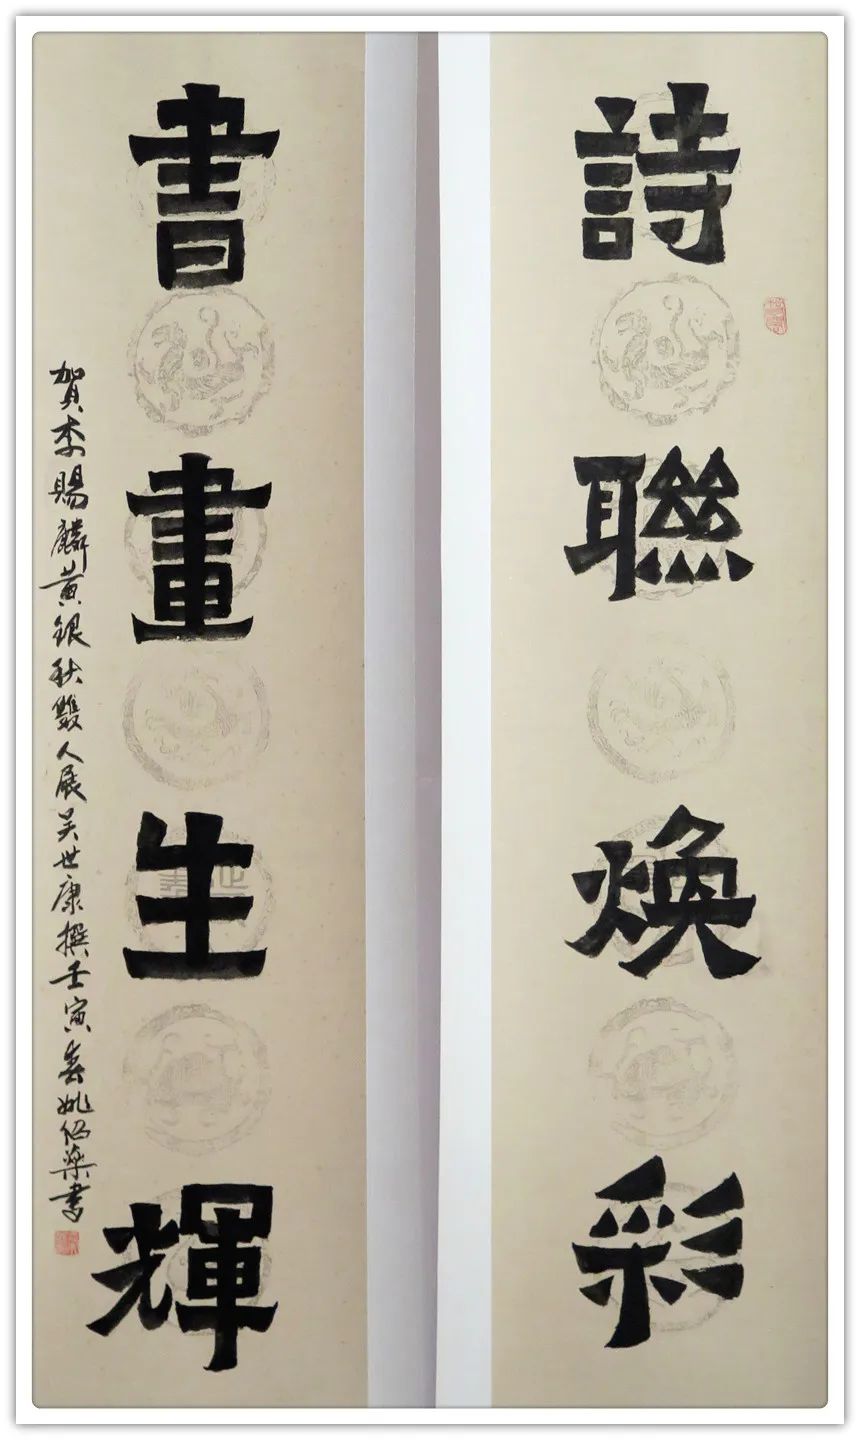 詩聯煥彩
書畫生輝
賀李賜麟黃銀秋雙人展吴世康撰壬寅春姚伯榮書